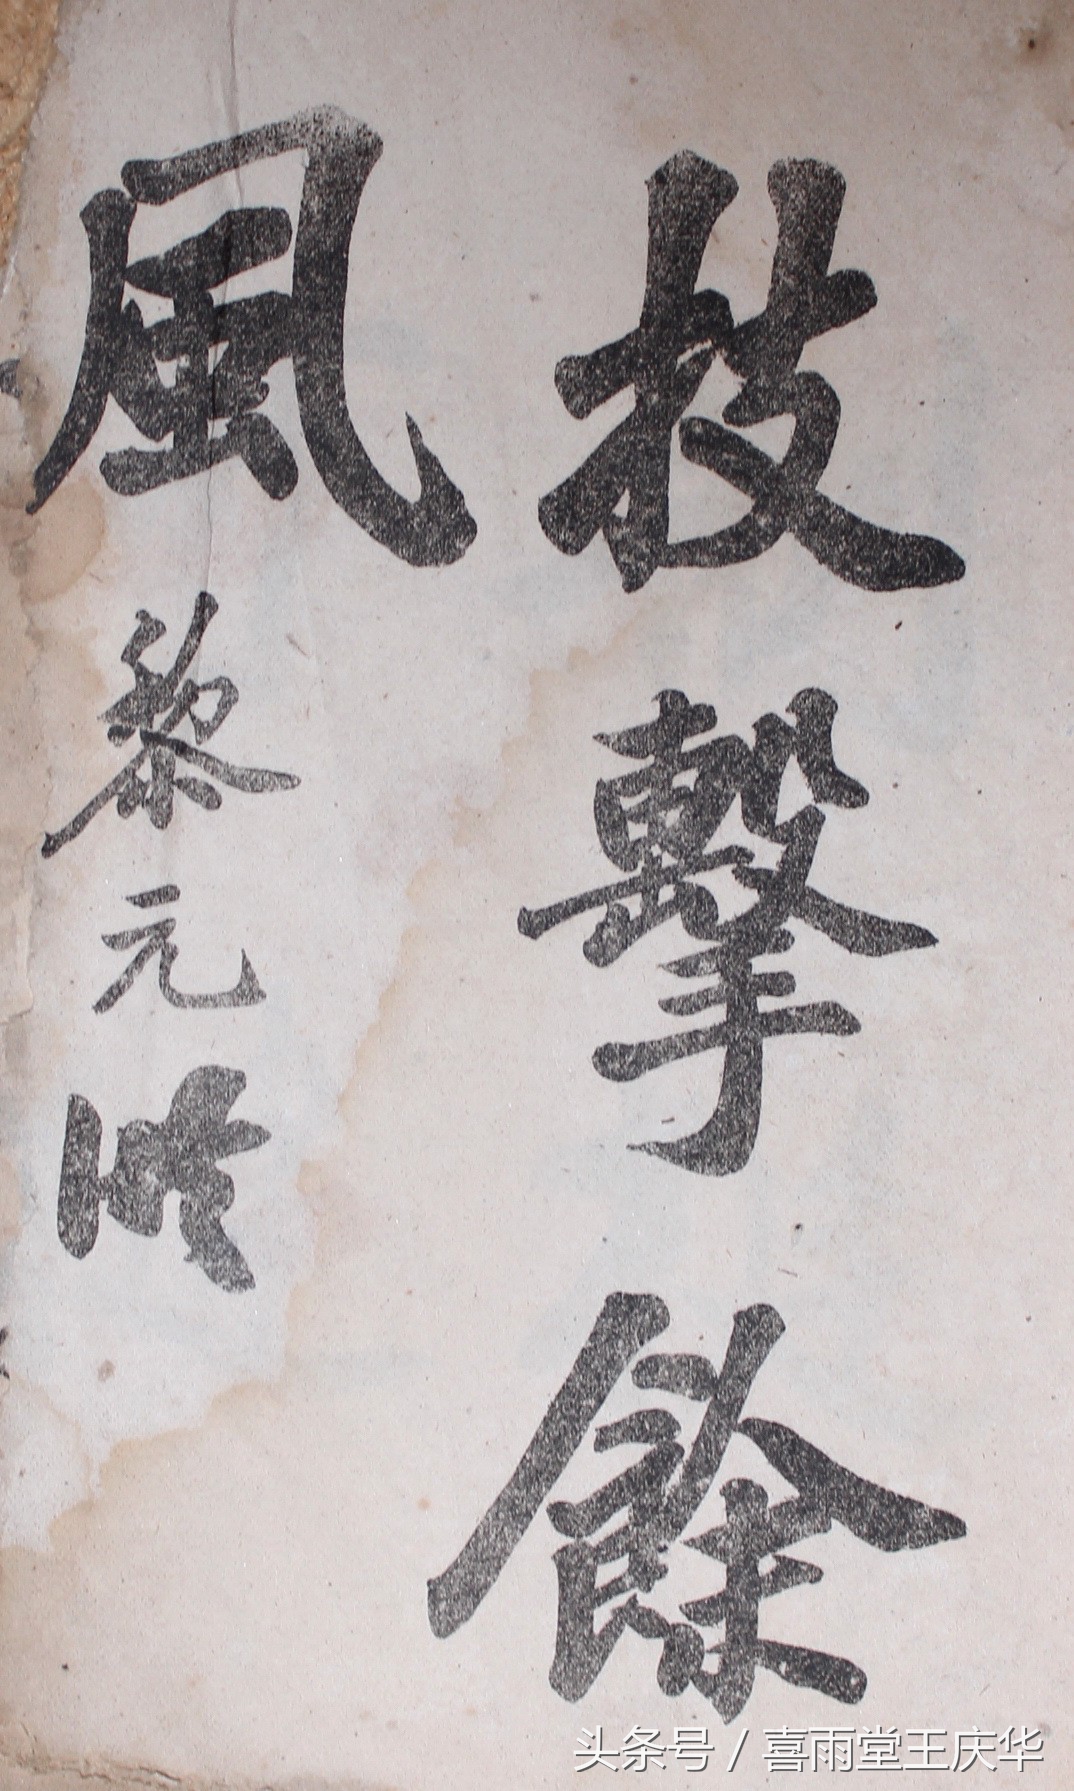 技擊餘
風
黎元洪
头条号 / 喜雨堂王庆华